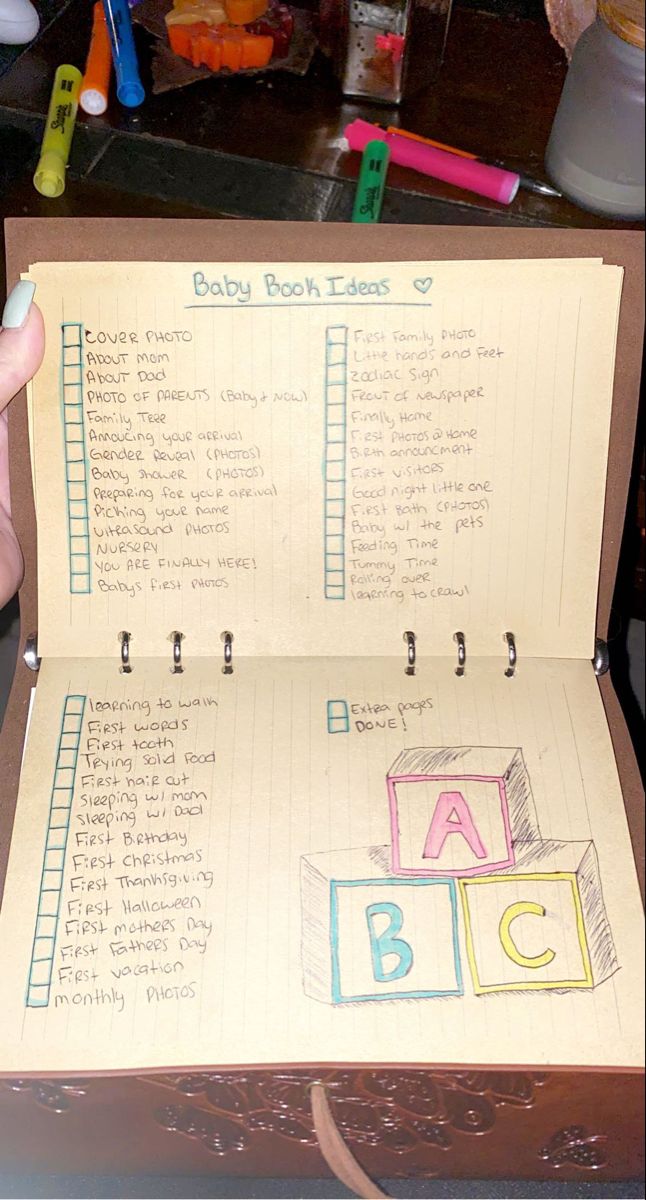 Sharpie
Sharpie
Baby Book Ideas ♡
COVER PHOTO
ABOUT MOM
ABOUT Dad
PHOTO OF PARENTS (Baby & NOW)
Family Tree
Annoucing your arrival
Gender Reveal (PHOTOS)
Baby shower (PHOTOS)
Preparing for your arrival
Picking your name
Ultrasound PHOTOS
NURSERY
YOU ARE FINALLY HERE!
Babys first PHOTOS
First Family PHOTO
Little hands and Feet
Zodiac Sign
FRONT OF Newspaper
Finally Home
First PHOTOS @ Home
Birth announcment
First visitors
Good night little one
First Bath (PHOTOS)
Baby w/ the pets
Feeding Time
Tummy Time
Rolling over
learning to crawl
learning to walk
First words
First tooth
Trying Solid Food
First hair cut
Sleeping w/ mom
Sleeping w/ Dad
First Birthday
First Christmas
First Thanksgiving
First Halloween
First mothers Day
First Fathers Day
First vacation
monthly PHOTOS
Extra pages
DONE!
A
B
C